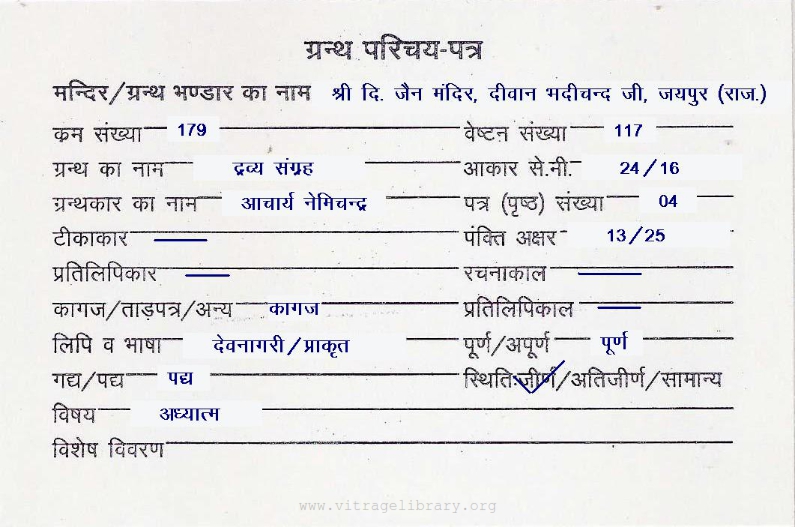 ग्रन्थ परिचय-पत्र
मन्दिर/ग्रन्थ भण्डार का नाम श्री दि. जैन मंदिर, दीवान भदीचन्द जी, जयपुर (राज.)
कम संख्या 179 वेष्टन संख्या 117
ग्रन्थ का नाम द्रव्य संग्रह आकार से.मी. 24/16
ग्रन्थकार का नाम आचार्य नेमिचन्द्र पत्र (पृष्ठ) संख्या 04
टीकाकार — पंक्ति अक्षर 13/25
प्रतिलिपिकार — रचनाकाल —
कागज/ताड़पत्र/अन्य कागज प्रतिलिपिकाल —
लिपि व भाषा देवनागरी/प्राकृत पूर्ण/अपूर्ण पूर्ण
गद्य/पद्य पद्य स्थिति:जीर्ण/अतिजीर्ण/सामान्य
विषय अध्यात्म
विशेष विवरण
www.vitragelibrary.org